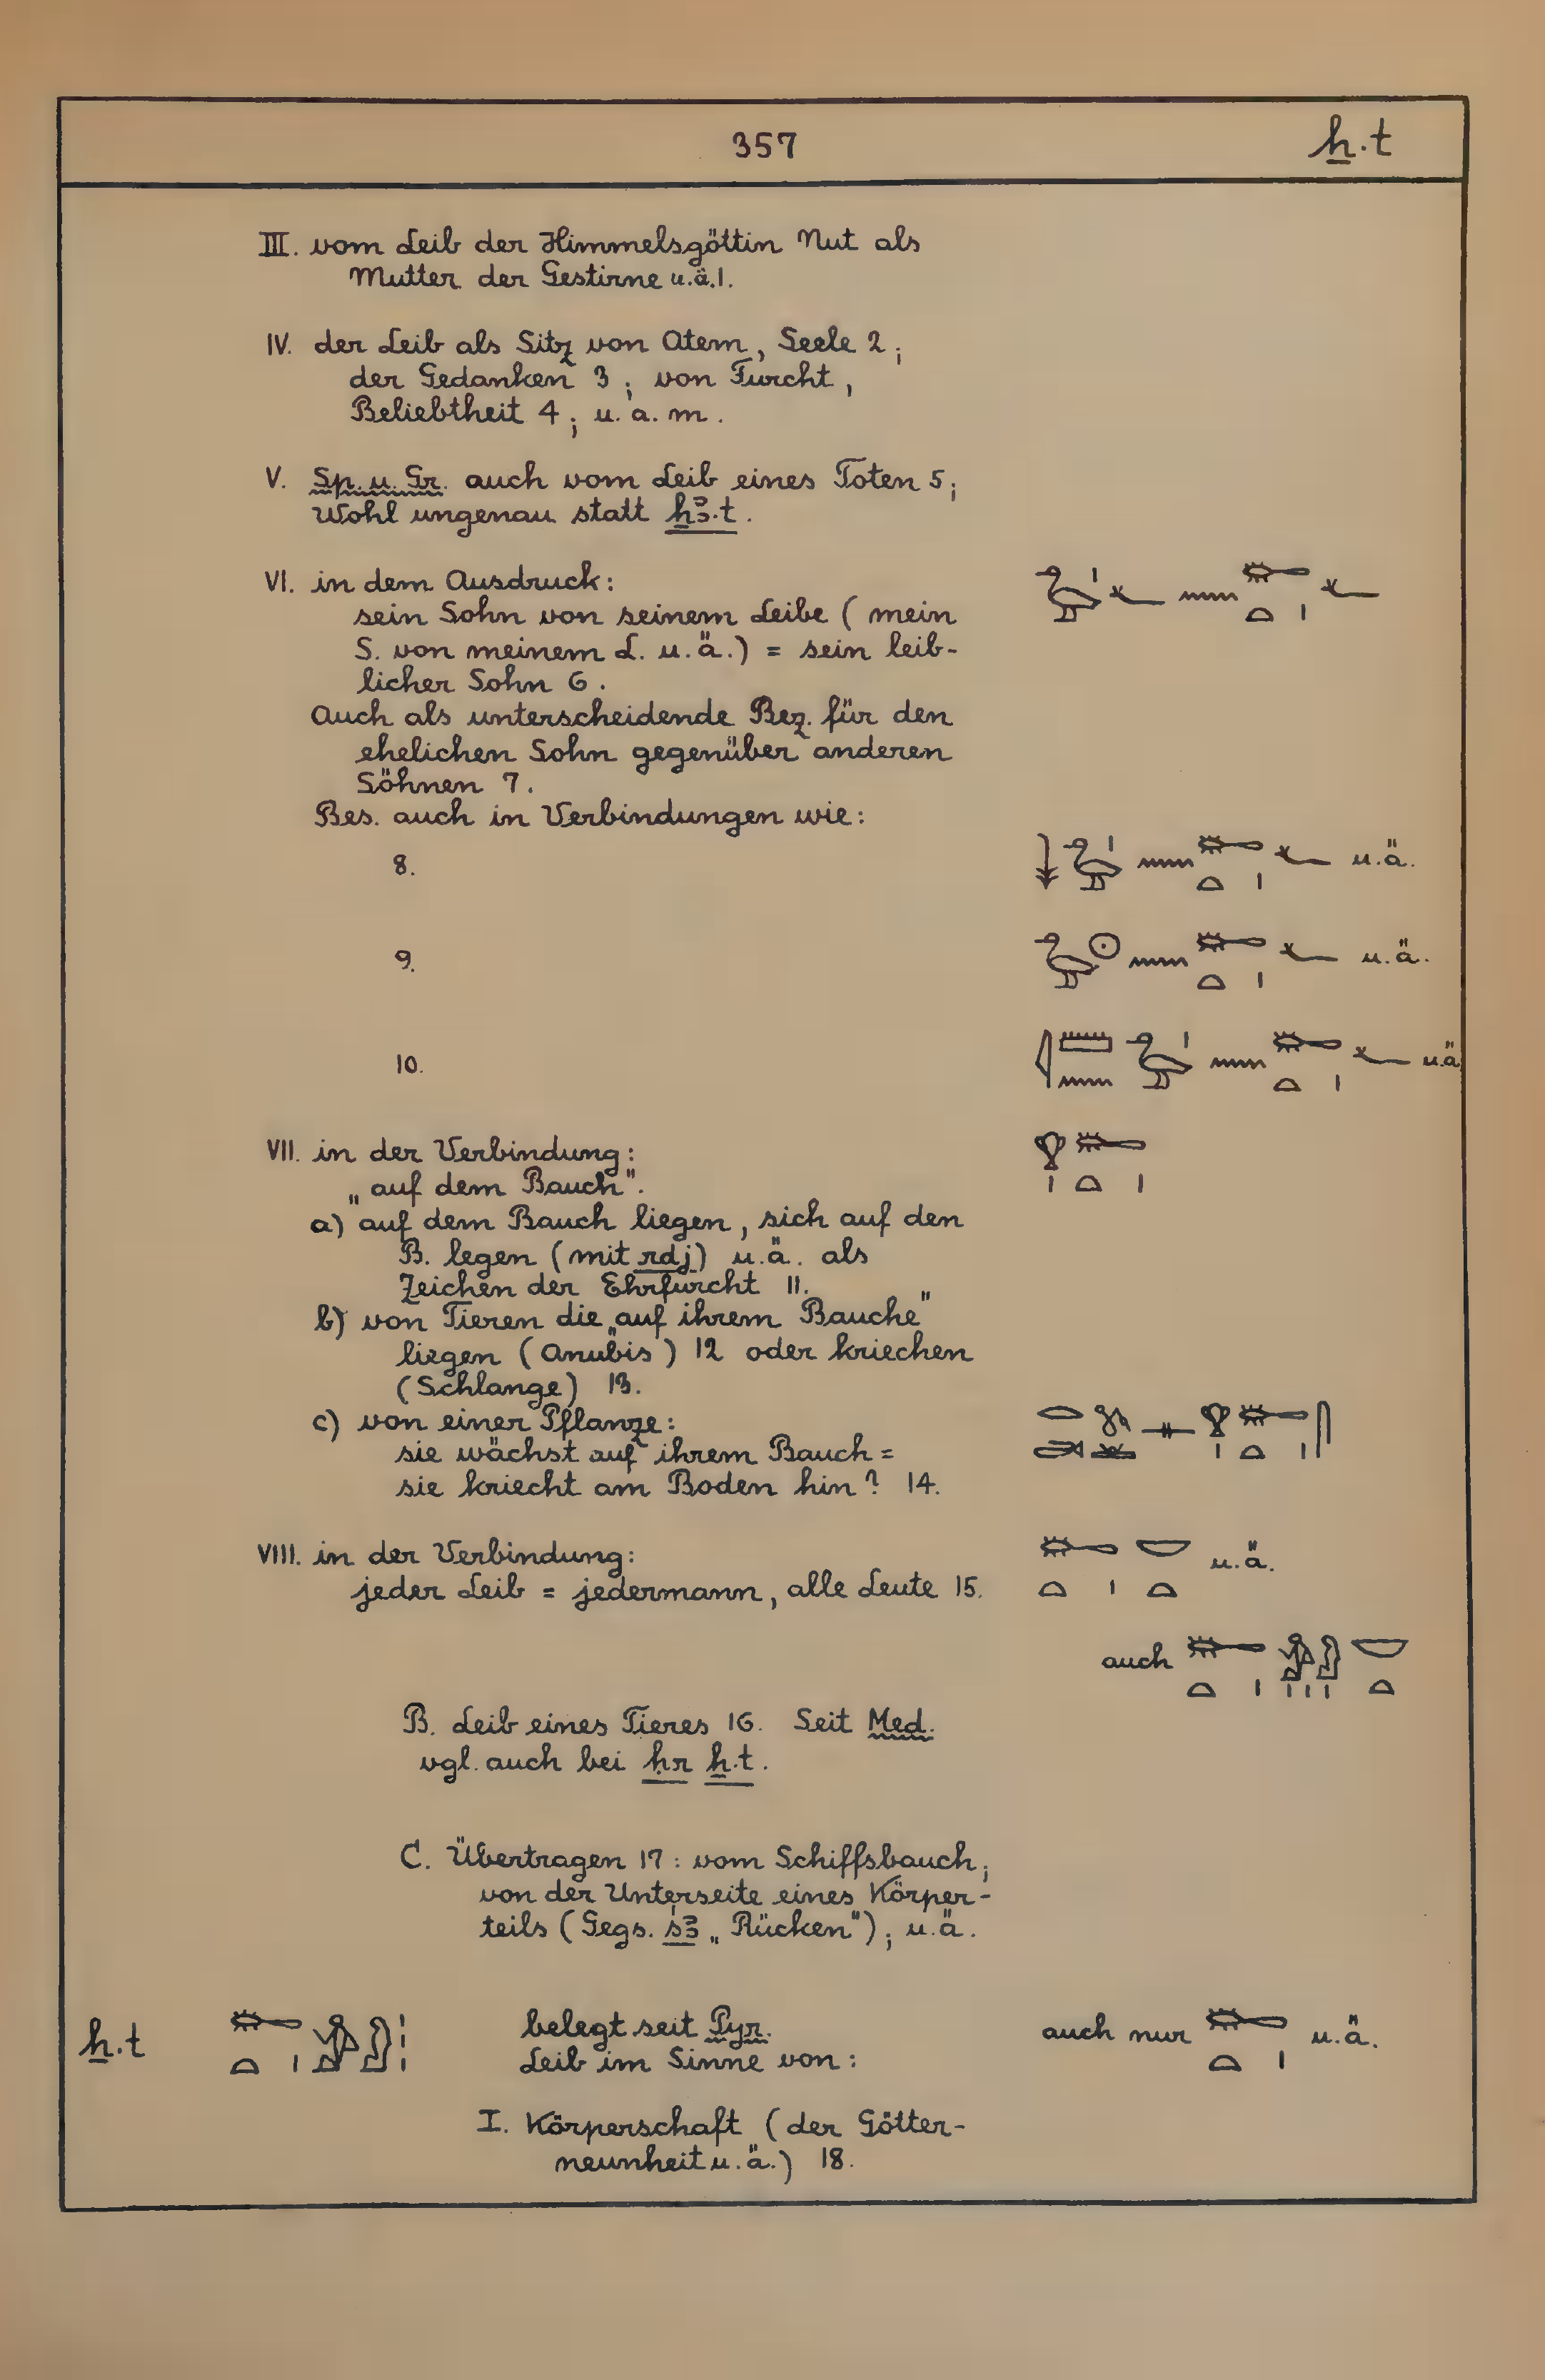 357 ẖ.t
III. vom Leib der Himmelsgöttin Nut als
Mutter der Gestirne u.ä.1.
IV. der Leib als Sitz von Atem, Seele 2;
der Gedanken 3; von Furcht,
Beliebtheit 4; u. a. m.
V. Sp. u. Gr. auch vom Leib eines Toten 5;
Wohl ungenau statt ẖꜣ.t.
VI. in dem Ausdruck: 𓅭𓏤𓆑𓈖𓄡𓏏𓏤𓆑
sein Sohn von seinem Leibe (mein
S. von meinem L. u.ä.) = sein leib-
licher Sohn 6.
Auch als unterscheidende Bez. für den
ehelichen Sohn gegenüber anderen
Söhnen 7.
Bes. auch in Verbindungen wie:
8. 𓇓𓅭𓏤𓈖𓄡𓏏𓏤𓆑 u.ä.
9. 𓅭𓇳𓈖𓄡𓏏𓏤𓆑 u.ä.
10. 𓇋𓏠𓈖𓅭𓏤𓈖𓄡𓏏𓏤𓆑 u.ä
VII. in der Verbindung: 𓄂𓏤𓄡𓏏𓏤
„auf dem Bauch".
a) auf dem Bauch liegen, sich auf den
B. legen (mit rdj) u.ä. als
Zeichen der Ehrfurcht 11.
b) von Tieren die „auf ihrem Bauche"
liegen (Anubis) 12 oder kriechen
(Schlange) 13.
c) von einer Pflanze:
sie wächst auf ihrem Bauch =
sie kriecht am Boden hin? 14.
VIII. in der Verbindung: 𓄡𓏏𓏤𓎟𓏏 u.ä.
jeder Leib = jedermann, alle Leute 15.
auch 𓄡𓏏𓏤𓀀𓁐𓏥𓎟𓏏
B. Leib eines Tieres 16. Seit Med.
vgl. auch bei ḥr ẖ.t.
C. Übertragen 17: vom Schiffsbauch;
von der Unterseite eines Körper-
teils (Gegs. śꜣ „Rücken"); u.ä.
ẖ.t 𓄡𓏏𓏤𓀀𓁐𓏥 belegt seit Pyr. auch nur 𓄡𓏏𓏤 u.ä.
Leib im Sinne von:
I. Körperschaft (der Götter-
neunheit u.ä.) 18.